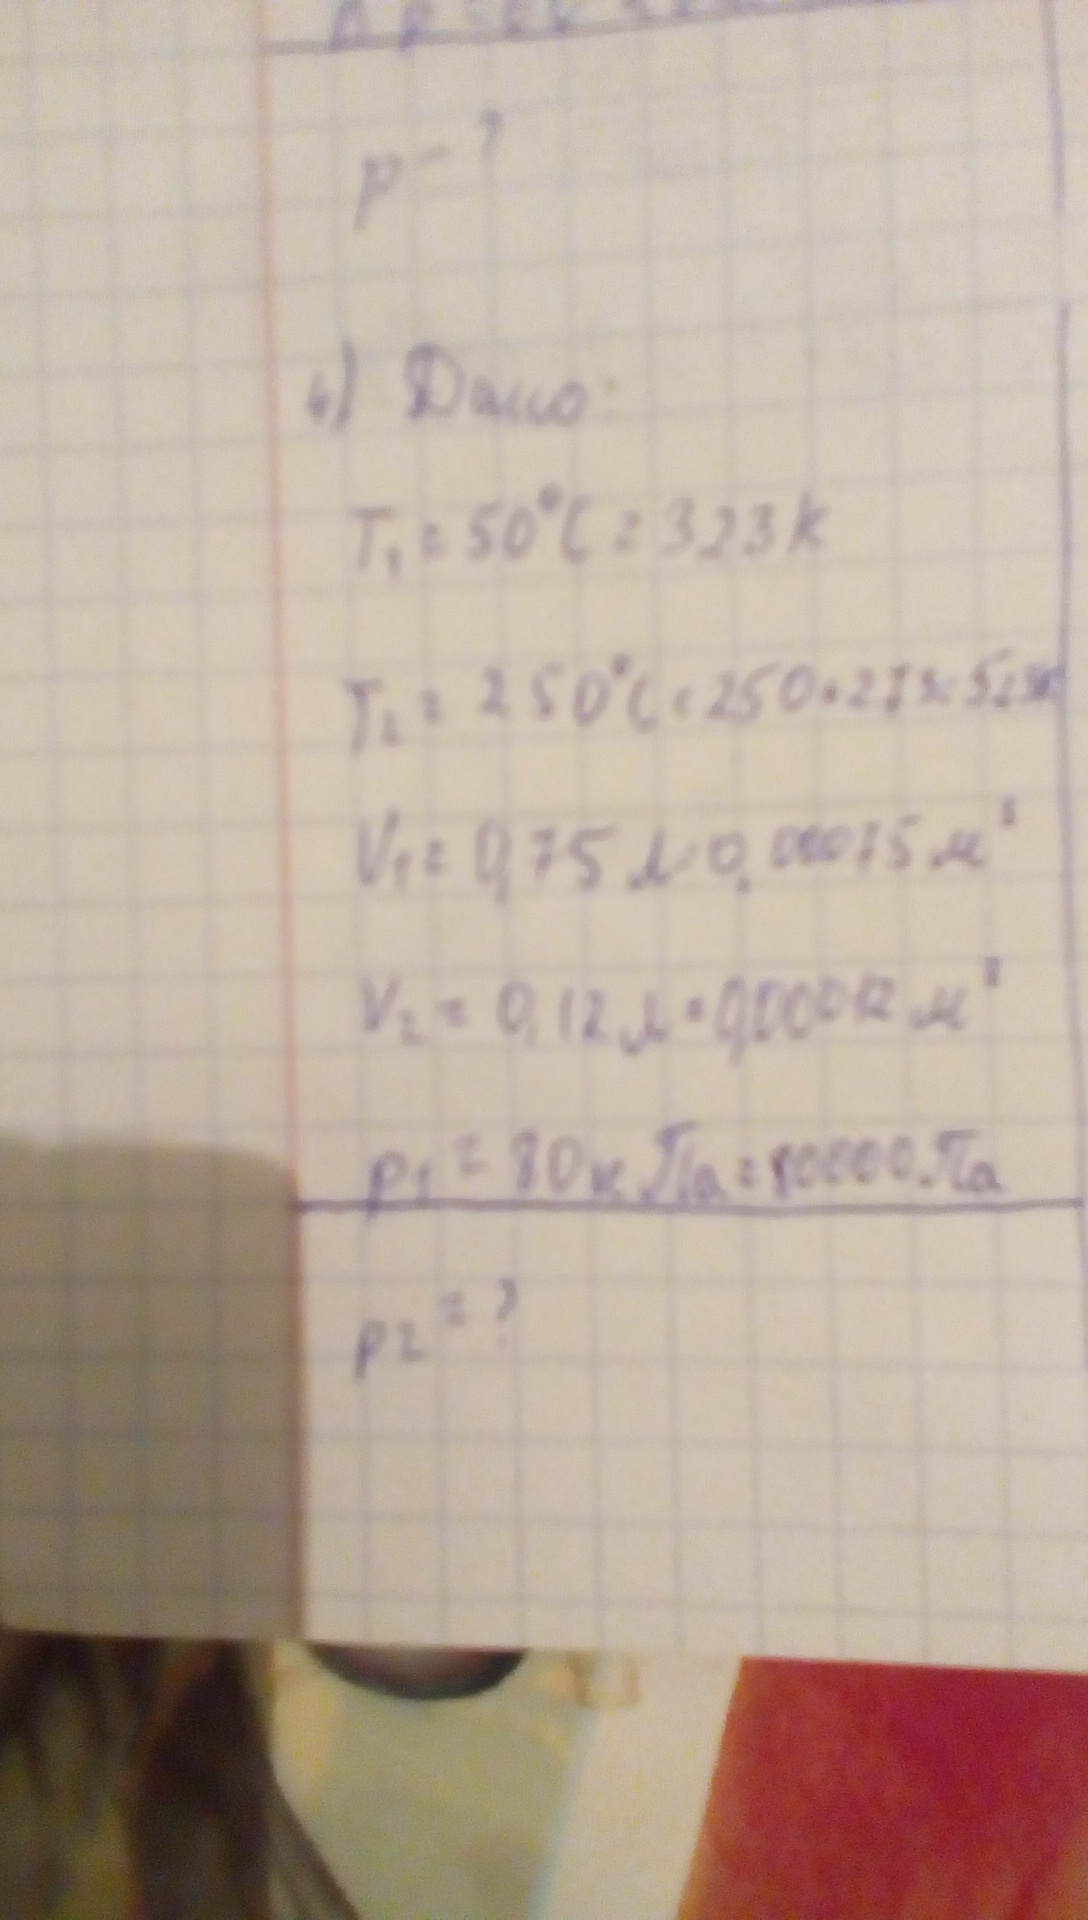 p - ?
4) Дано:
T₁ = 50°C = 323 k
T₂ = 250°C = 250+273=523k
V₁ = 0,75 л 0,00075 м³
V₂ = 0,12 л = 0,00012 м³
p₁ = 80 кПа = 80000 Па
p₂ = ?